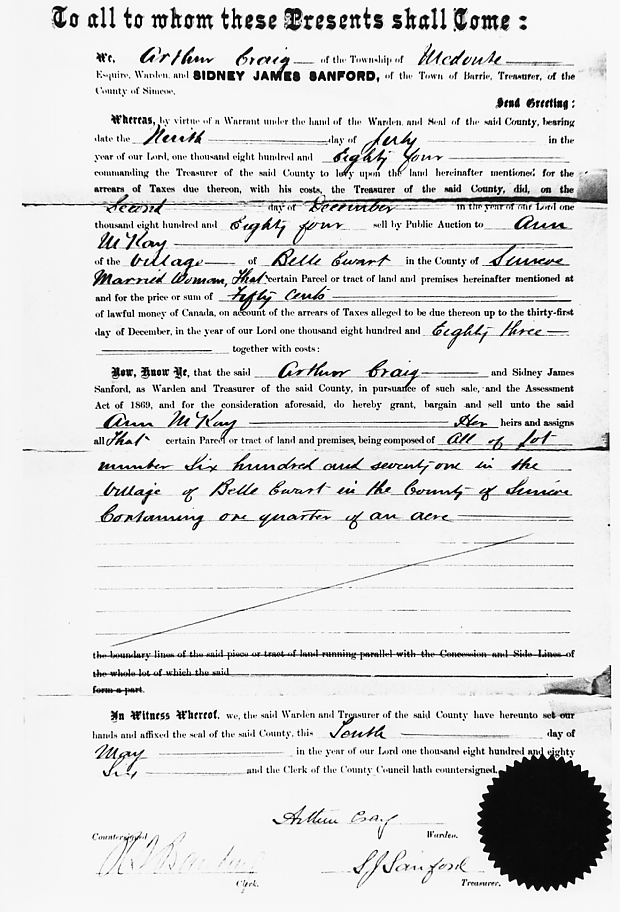 To all to whom these Presents shall Come:
We, Arthur Craig of the Township of Medonte
Esquire, Warden, and SIDNEY JAMES SANFORD, of the Town of Barrie, Treasurer, of the
County of Simcoe,
Send Greeting:
Whereas, by virtue of a Warrant under the hand of the Warden, and Seal of the said County, bearing
date the day of July in the
year of our Lord, one thousand eight hundred and Eighty four
commanding the Treasurer of the said County to levy upon the land hereinafter mentioned for the
arrears of Taxes due thereon, with his costs, the Treasurer of the said County, did, on the
Second day of December in the year of our Lord one
thousand eight hundred and Eighty four sell by Public Auction to Ann
McKay
of the Village of Belle Ewart in the County of Simcoe
Married Woman, That certain Parcel or tract of land and premises hereinafter mentioned at
and for the price or sum of Fifty Cents
of lawful money of Canada, on account of the arrears of Taxes alleged to be due thereon up to the thirty-first
day of December, in the year of our Lord one thousand eight hundred and Eighty three
together with costs:
Now, Know Ye, that the said Arthur Craig and Sidney James
Sanford, as Warden and Treasurer of the said County, in pursuance of such sale, and the Assessment
Act of 1869, and for the consideration aforesaid, do hereby grant, bargain and sell unto the said
Ann McKay Her heirs and assigns
all That certain Parcel or tract of land and premises, being composed of all of Lot
number Six hundred and seventy one in the
Village of Belle Ewart in the County of Simcoe
Containing one quarter of an acre
the boundary lines of the said piece or tract of land running parallel with the Concession and Side Lines of
the whole lot of which the said
form a part.
In Witness Whereof, we, the said Warden and Treasurer of the said County have hereunto set our
hands and affixed the seal of the said County, this Tenth day of
May in the year of our Lord one thousand eight hundred and eighty
Six and the Clerk of the County Council hath countersigned.
Arthur Craig
Countersigned Warden.
S J Sanford
Clerk. Treasurer.